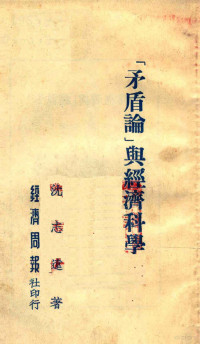 「矛盾論」與經濟科學
沈志遠 著
經濟周報社印行